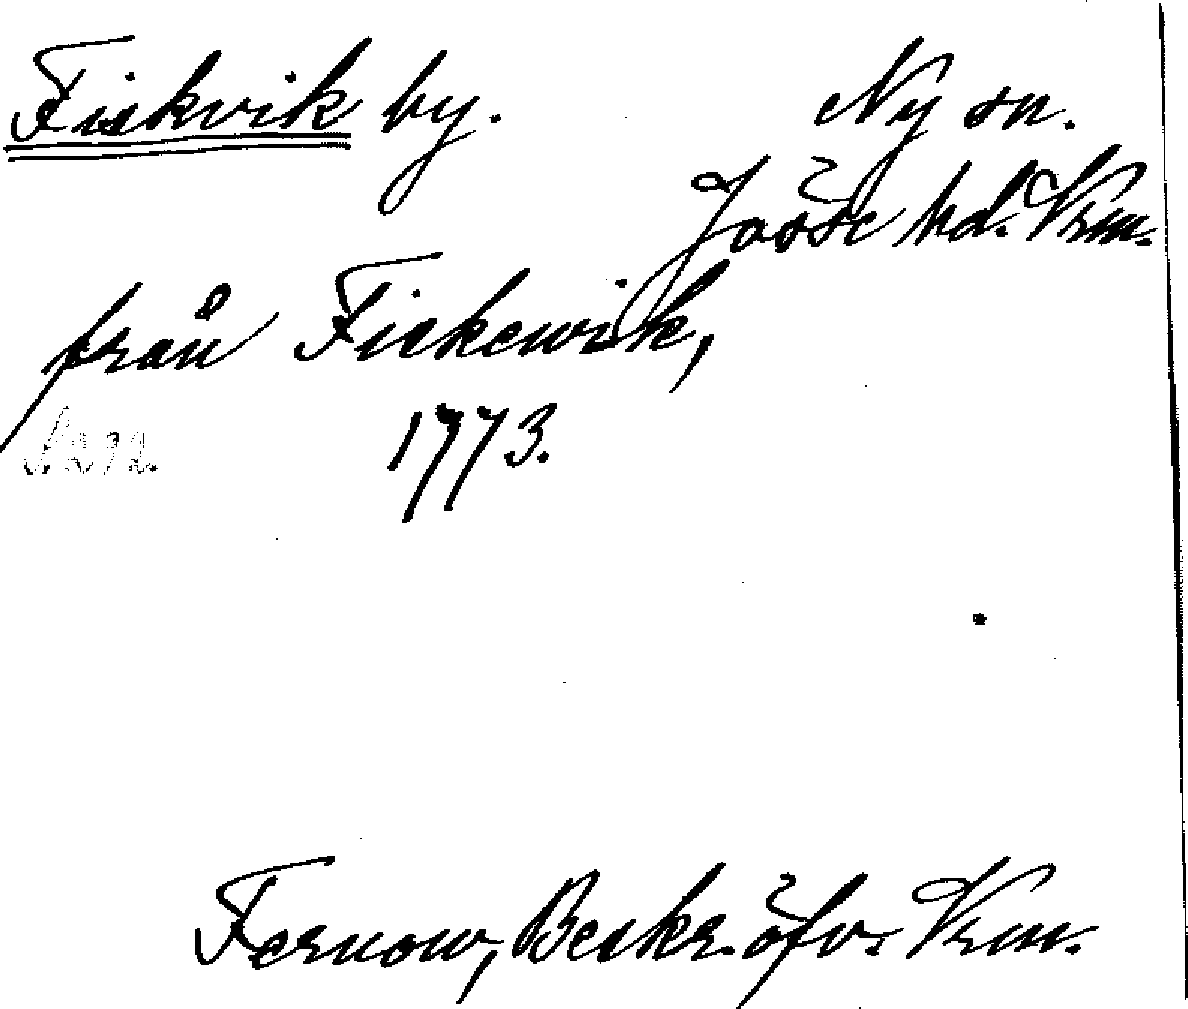 Fiskvik by. Ny sn.
Jösse hd. Vrm.
från Fiskewik,
1773.
Fernow, Beskr. öfv. Vrm.